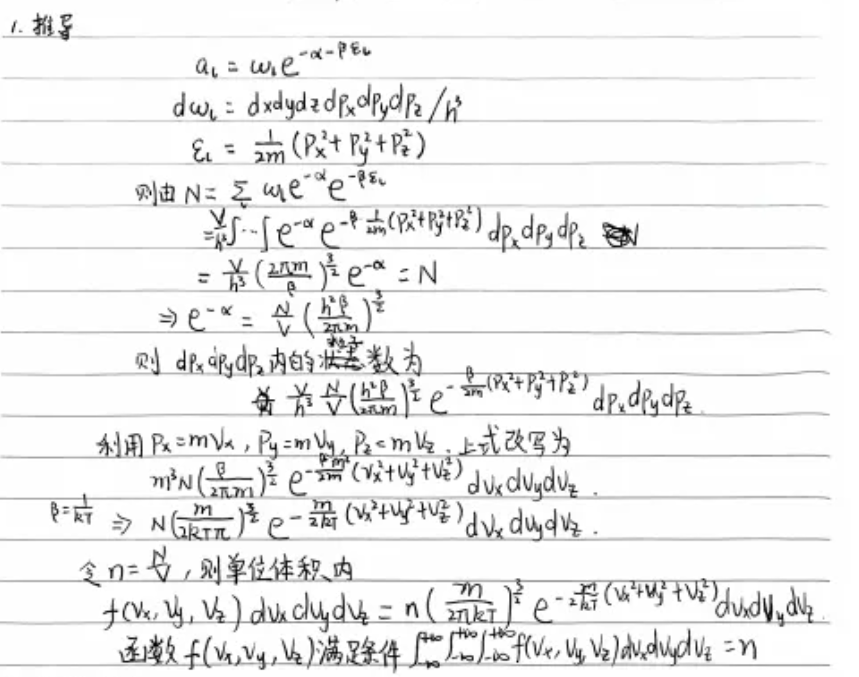 1. 推导
a_l = ω_l e^{-α-βε_l}
dω_l = dxdydz dp_x dp_y dp_z / h³
ε_l = 1/2m (P_x² + P_y² + P_z²)
则由 N = Σ_l ω_l e^{-α} e^{-βε_l}
= V/h³ ∫…∫ e^{-α} e^{-β 1/2m (P_x²+P_y²+P_z²)} dp_x dp_y dp_z
= V/h³ (2πm/β)^{3/2} e^{-α} = N
⇒ e^{-α} = N/V (h²β/2πm)^{3/2}
则 dp_x dp_y dp_z 内的粒子数为
V/h³ N/V (h²β/2πm)^{3/2} e^{-β/2m (P_x²+P_y²+P_z²)} dp_x dp_y dp_z.
利用 P_x = mV_x, P_y = mV_y, P_z = mV_z. 上式改写为
m³N (β/2πm)^{3/2} e^{-βm²/2m (V_x²+V_y²+V_z²)} dv_x dv_y dv_z.
β = 1/kT ⇒ N (m/2kTπ)^{3/2} e^{-m/2kT (V_x²+V_y²+V_z²)} dv_x dv_y dv_z.
令 n = N/V, 则单位体积内
f(V_x, V_y, V_z) dv_x dv_y dv_z = n (m/2πkT)^{3/2} e^{-m/2kT (V_x²+V_y²+V_z²)} dv_x dv_y dv_z.
函数 f(V_x, V_y, V_z) 满足条件 ∫_{-∞}^{+∞} ∫_{-∞}^{+∞} ∫_{-∞}^{+∞} f(V_x, V_y, V_z) dv_x dv_y dv_z = n